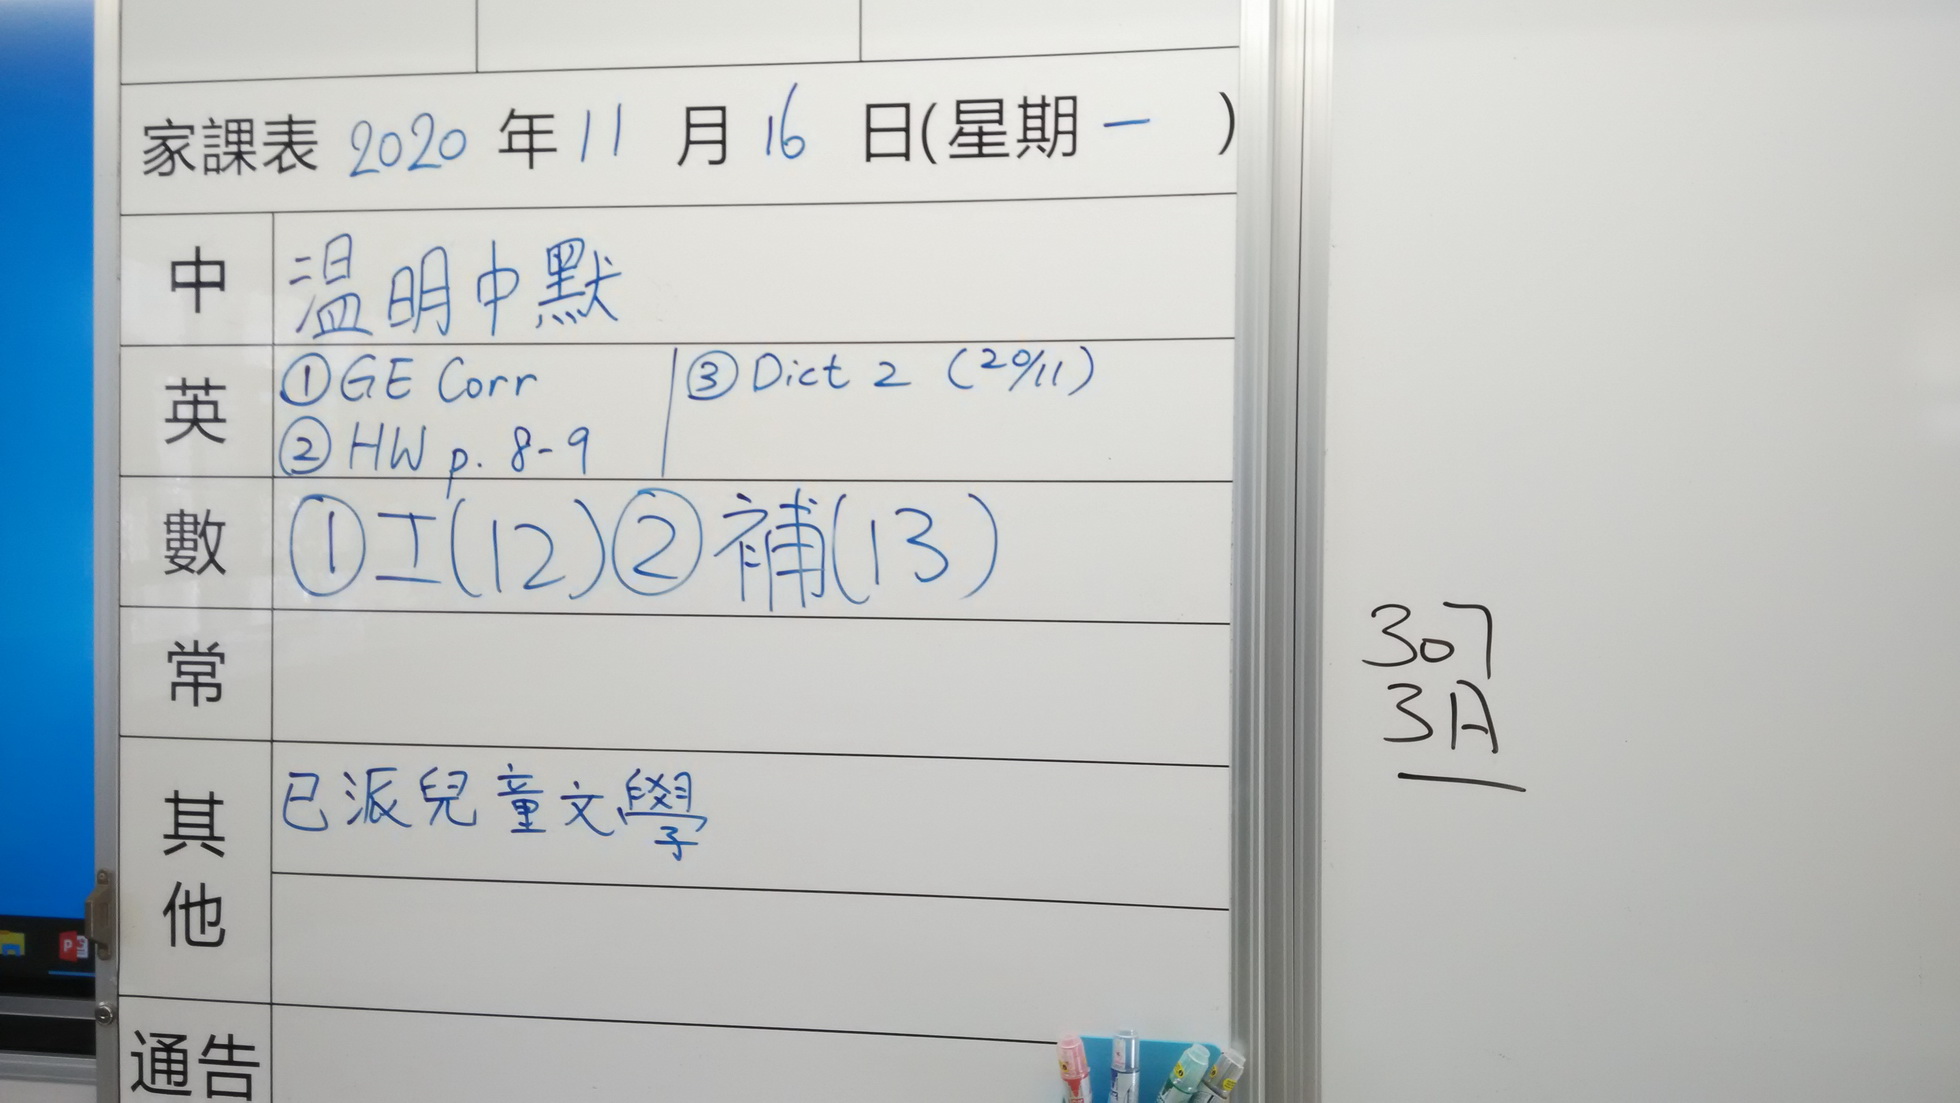 家課表 2020 年 11 月 16 日(星期一 )
中 温明中默
英 ①GE Corr ③Dict 2 (20/11)
②HW p. 8-9
數 ①工(12)②補(13)
常
其他 已派兒童文學
通告
307
3A